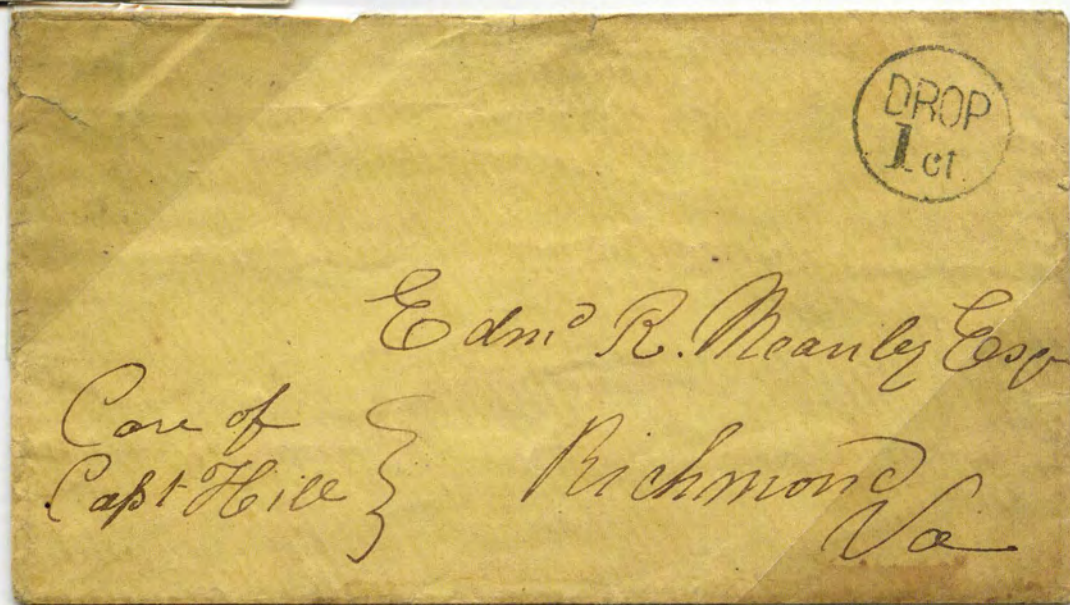 DROP
1 ct.
Edmd R. Meanley Esqr
Care of
Capt Hill
Richmond
Va